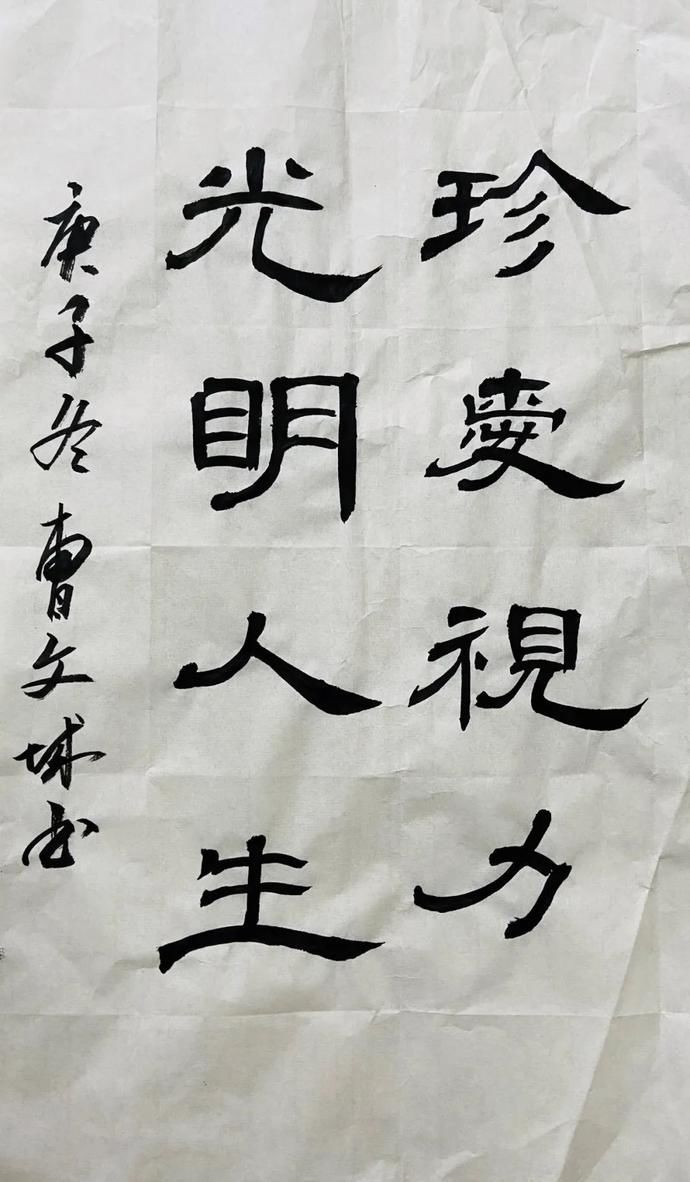 珍愛視力
光明人生
庚子冬曹文城书